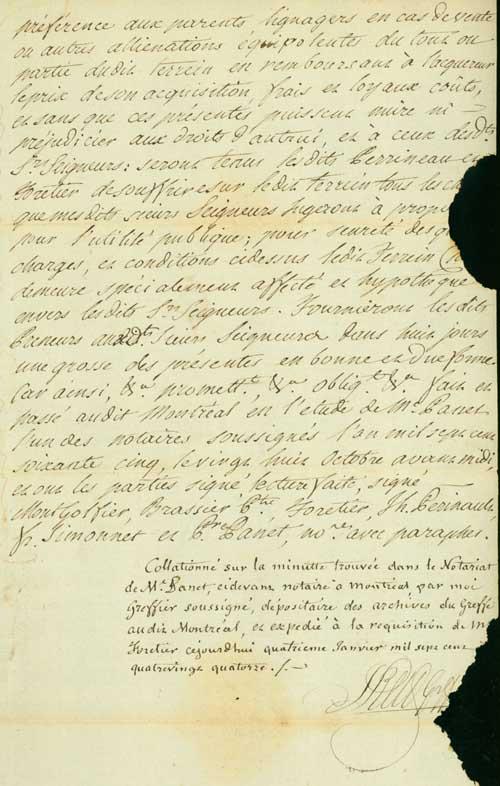 préférence aux parents lignagers en cas de vente
ou autres alliénations équipolentes du tout ou
partie dudit terrein en remboursant à l'acquereur
le prix de son acquisition frais et loyaux coûts,
et sans que ces présentes puissent nuire ni
préjudicier aux droits d'autrui, et à ceux desdts
Srs Seigneurs: seront tenus lesdits Perrineau et
Foretier de souffrir sur ledit terrein tous les
que mesdits sieurs Seigneurs jugeront à propos
pour l'utilité publique; pour sureté des
charges, et conditions cidessus ledit Terrein
demeure spécialement affecté et hypothequé
envers lesdits Srs Seigneurs. Fourniront lesdits
Preneurs auxdts Sieurs Seigneurs dans huit jours
une grosse des présentes en bonne et due forme
Car ainsi, &a promettt &a obligt &a fait et
passé audit Montréal en l'etude de Mr Panet
l'un des notaires soussignés l'an mil sept cent
soixante cinq, le vingt huit Octobre avant midi
et ont les parties signé lecture faite, signé
Montgolfier, Brassier Ptre Foretier, Jh. Perinault
fr. Simonnet et Pre Panet, nore avec paraphes.
Collationné sur la minutte trouvée dans le Notariat
de Mr Panet, cidevant notaire à Montréal par moi
Greffier soussigné, dépositaire des archives du Greffe
audit Montréal, et expedié à la requisition de Mr
Foretier cejourdhui quatrieme Janvier mil sept cent
quatrevingt quatorze ./.